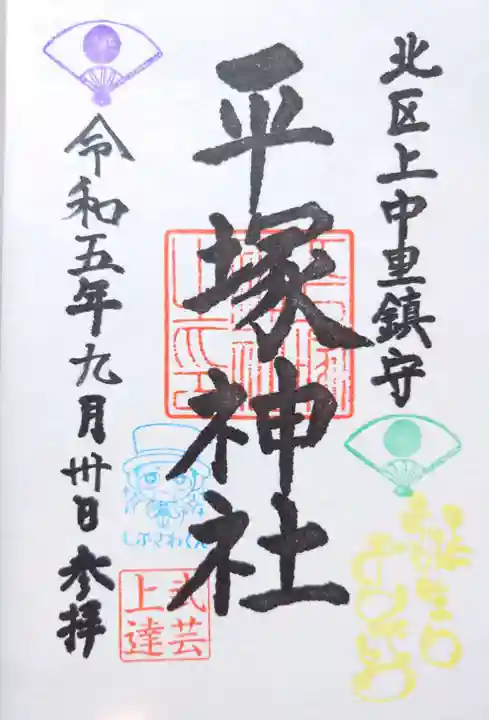 北区上中里鎮守
平塚神社
令和五年九月卅日参拝
しぶさわくん
武芸
上達